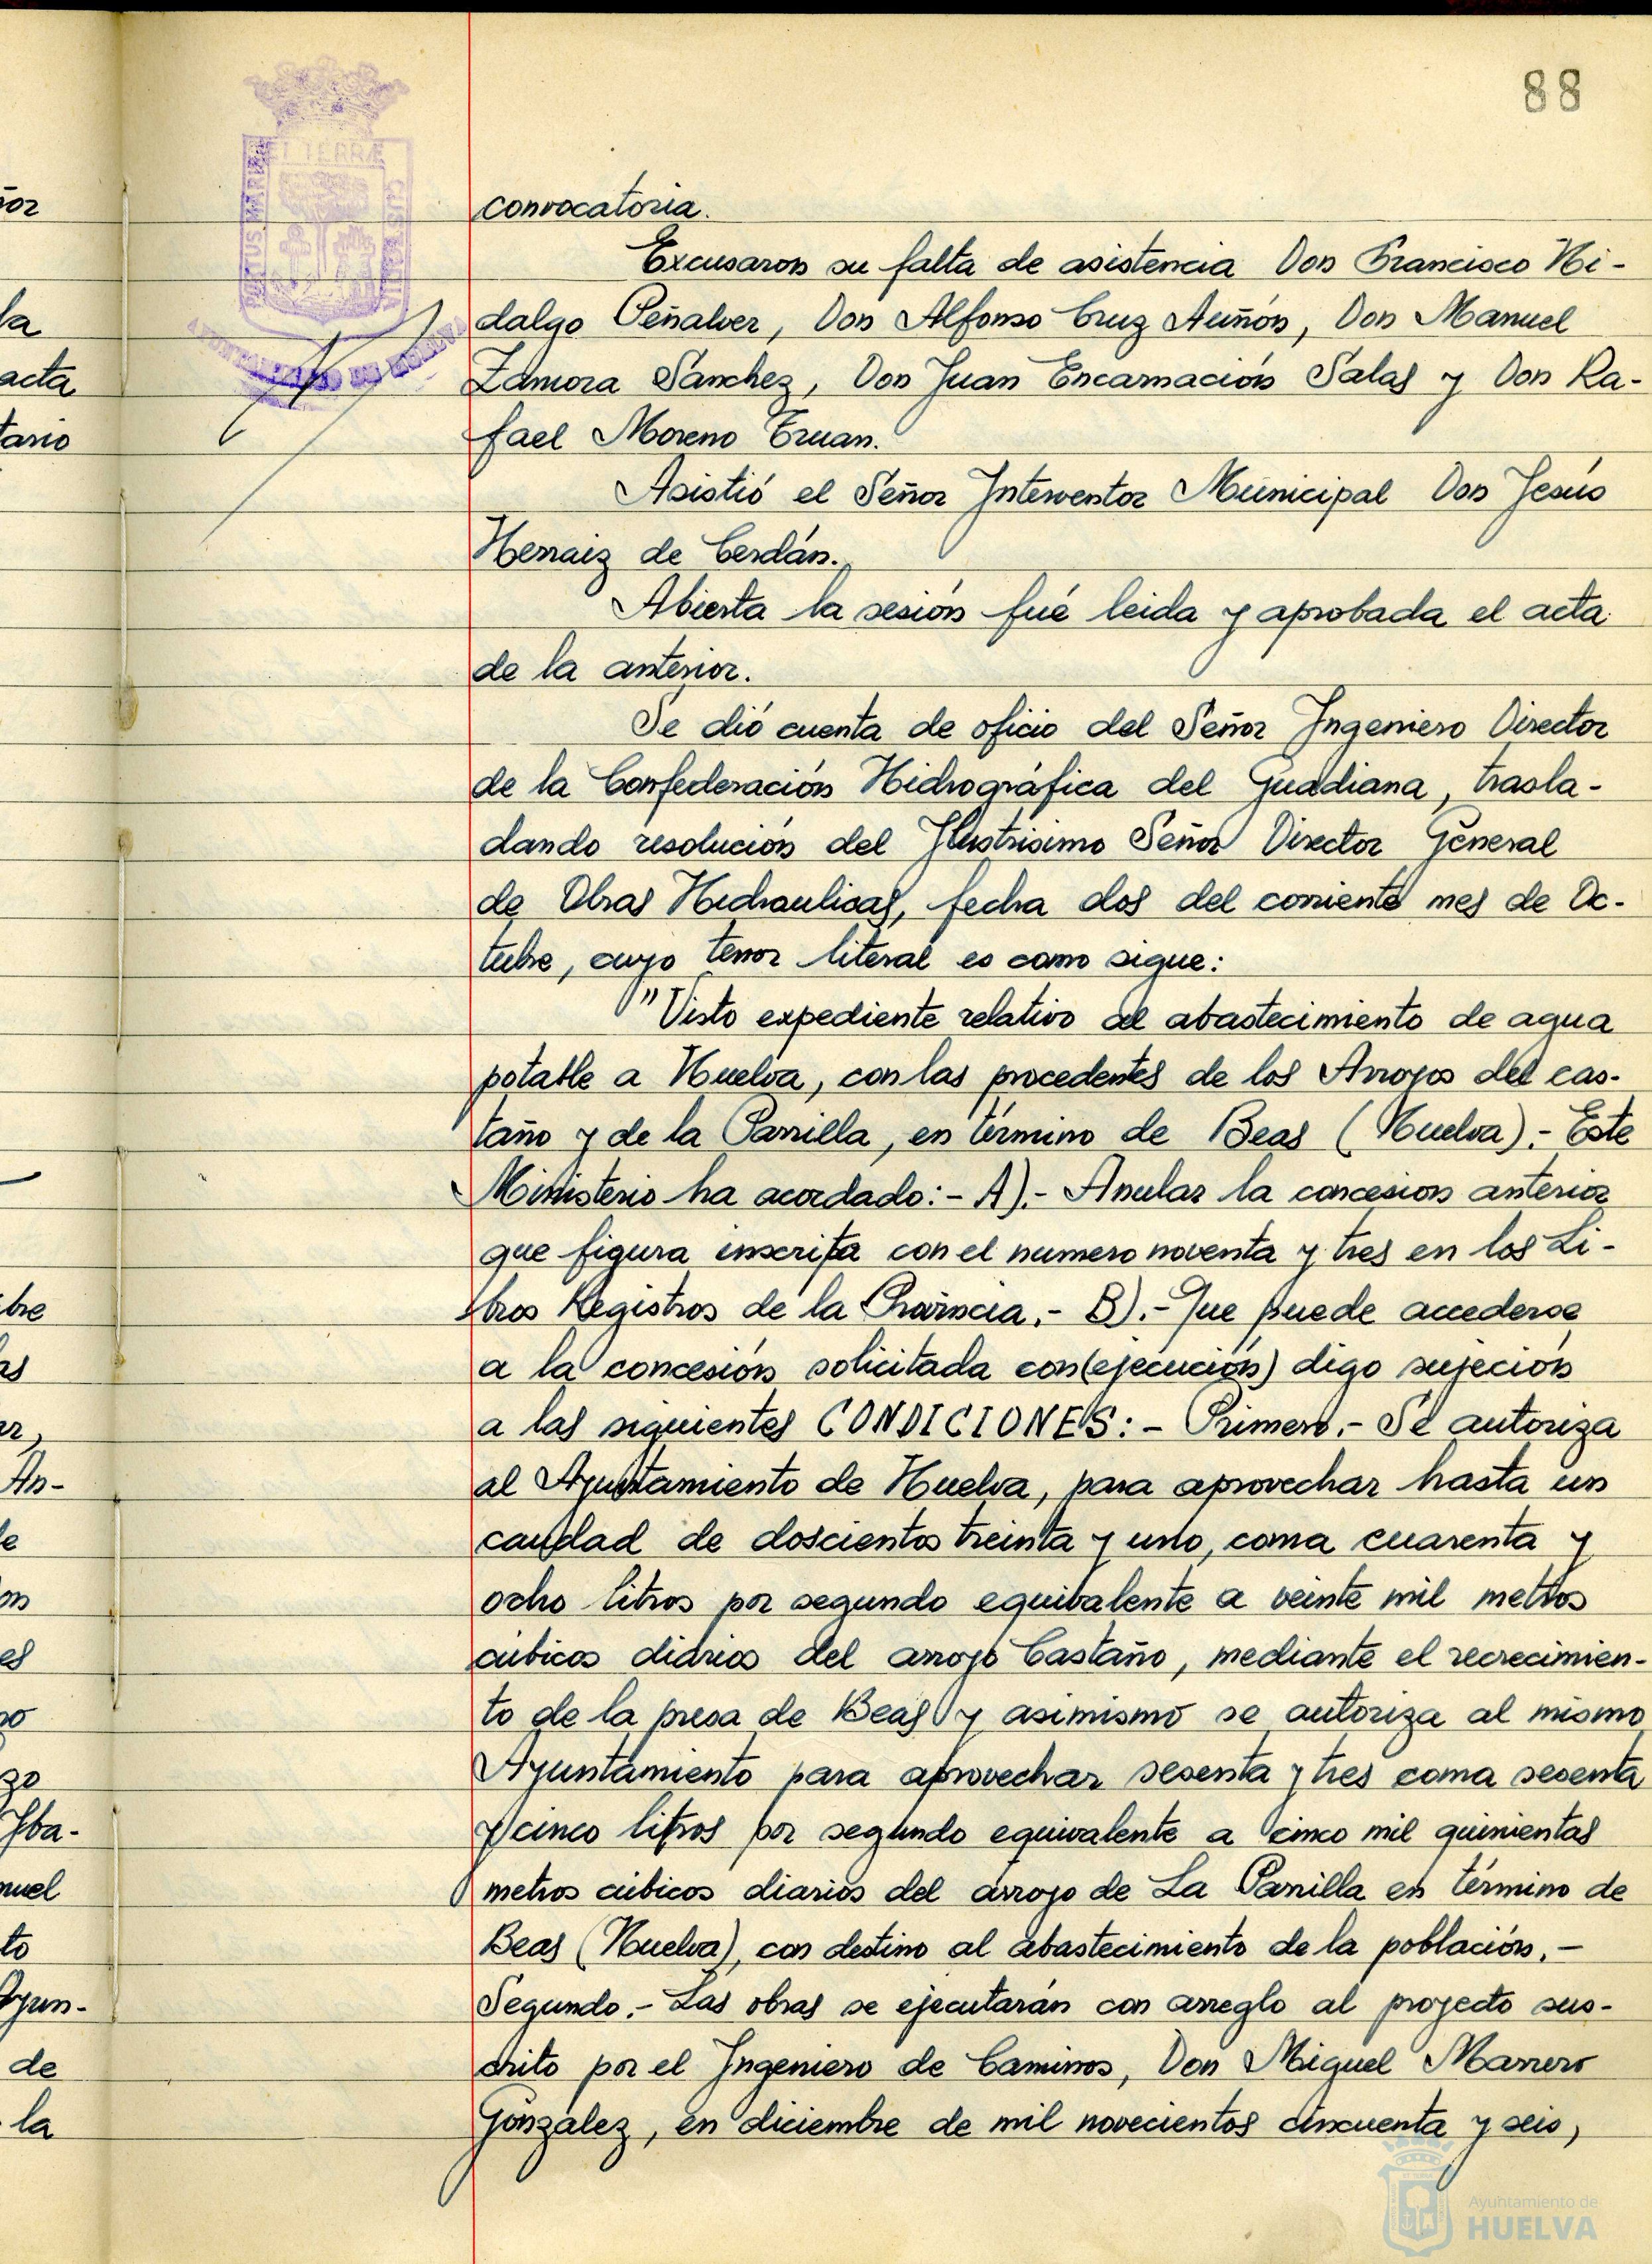 88
PORTUS MARIS
ET TERRÆ
CUSTODIA
AYUNTAMIENTO DE HUELVA
convocatoria.
Excusaron su falta de asistencia Don Francisco Hi-
dalgo Peñalver, Don Alfonso Cruz Auñón, Don Manuel
Zamora Sanchez, Don Juan Encarnación Salas y Don Ra-
fael Moreno Truan.
Asistió el Señor Interventor Municipal Don Jesús
Herraiz de Cerdán.
Abierta la sesión fué leida y aprobada el acta
de la anterior.
Se dió cuenta de oficio del Señor Ingeniero Director
de la Confederación Hidrográfica del Guadiana, trasla-
dando resolución del Ilustrísimo Señor Director General
de Obras Hidraulicas, fecha dos del corriente mes de Oc-
tubre, cuyo tenor literal es como sigue:
"Visto expediente relativo al abastecimiento de agua
potable a Huelva, con las procedentes de los Arroyos del cas-
taño y de la Parrilla, en término de Beas (Huelva).- Este
Ministerio ha acordado:- A).- Anular la concesion anterior
que figura inscrita con el numero noventa y tres en los Li-
bros Registros de la Provincia.- B).- Que puede accederse
a la concesión solicitada con (ejecución) digo sujeción
a las siguientes CONDICIONES:- Primero.- Se autoriza
al Ayuntamiento de Huelva, para aprovechar hasta un
caudad de doscientos treinta y uno, coma cuarenta y
ocho litros por segundo equivalente a veinte mil metros
cúbicos diarios del arroyo Castaño, mediante el recrecimien-
to de la presa de Beas y asimismo se autoriza al mismo
Ayuntamiento para aprovechar sesenta y tres coma sesenta
y cinco litros por segundo equivalente a cinco mil quinientas
metros cúbicos diarios del arroyo de La Parrilla en término de
Beas (Huelva), con destino al abastecimiento de la población.-
Segundo.- Las obras se ejecutarán con arreglo al proyecto sus-
crito por el Ingeniero de Caminos, Don Miguel Marrero
González, en diciembre de mil novecientos cincuenta y seis,
Ayuntamiento de
HUELVA